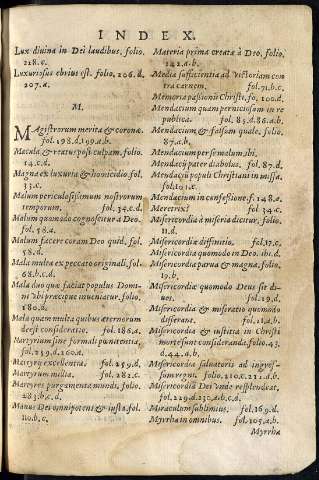 INDEX.
Lux diuina in Dei laudibus. folio.
218.c.
Luxuriosus ebrius est. folio, 206.d.
207.a.
M.
Magistrorum merita & corona.
fol. 198.d.199.a.b.
Macula & reatus post culpam, folio.
14.c.d.
Magna & luxuria & homicidio fol.
33.c.
Malum periculosissimum nostrorum
temporum, fol. 34.c.d.
Malum quomodo cognoscitur a Deo.
fol. 58.a.
Malum facere coram Deo quid, fol.
58.d.
Mala multa ex peccato originali, fol.
68.b.c.d.
Mala duo quæ faciat populus Domi-
ni vbi præcipue inueniatur, folio.
180.d.
Mala quam multa quibus æternorum
deest consideratio. fol. 186.a.
Martyrium sine formali pœnitentia,
fol. 259.d.260.a.
Martyrij excellentia. fol. 259.d.
Martyrum militia. fol. 282.c.
Martyres purgamenta mundi, folio.
283.b.c.d.
Manus Dei omnipotens & iusta, fol.
110.b.c.
Materia prima creata à Deo, folio.
142.a.b.
Media sufficientia ad victoriam con
tra carnem, fol. 71.b.c.
Memoria passionis Christi, fo. 100.d.
Mendacium quam perniciosum in re
publica. fol. 85.d.86.a.b.
Mendacium & falsum quale. folio.
87.a.b.
Mendacium per semalum. ibi.
Mendacij pater diabolus, fol. 87.d.
Mendacij populi Christiani in missa.
fol. 101.c.
Mendacium in confessione. f. 148.a.
Meretrix? fol. 34.c.
Misericordia à miseria dicitur, folio.
11.d.
Misericordiæ diffinitio. fol. 17.c.
Misericordia quomodo in Deo. ibi.d.
Misericordia parua & magna, folio,
19.b.
Misericordiæ quomodo Deus sit di-
ues. fol. 19.d.
Misericordia & miseratio quomodo
differant. fol. 21.a.b.
Misericordia & iustitia in Christi
morte sunt consideranda, folio. 43.
d.44.a.b.
Misericordia saluatoris ad ingres-
sum regni. folio. 210.c.211.a.b.
Misericordia Dei vnde resplendeat,
fol. 229.d.230.a.b.c.d.
Miraculum sublimius. fol. 169.d.
Myrrha in omnibus. fol. 105.a.b.
Myrrha